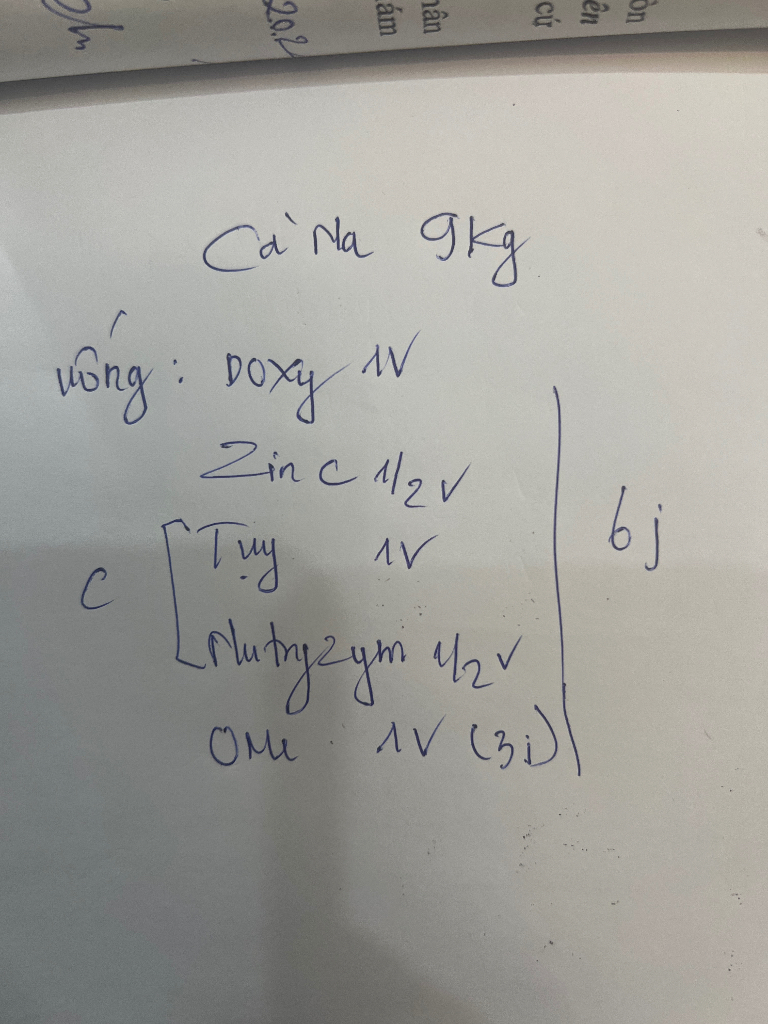 òn
ên
cứ
hân
ám
20.2
Cà Na 9Kg
uống: Doxy 1V
Zin C 1/2 V
Tụy 1V
C
6j
Nutryzym 1/2 V
OMe 1V (3j)